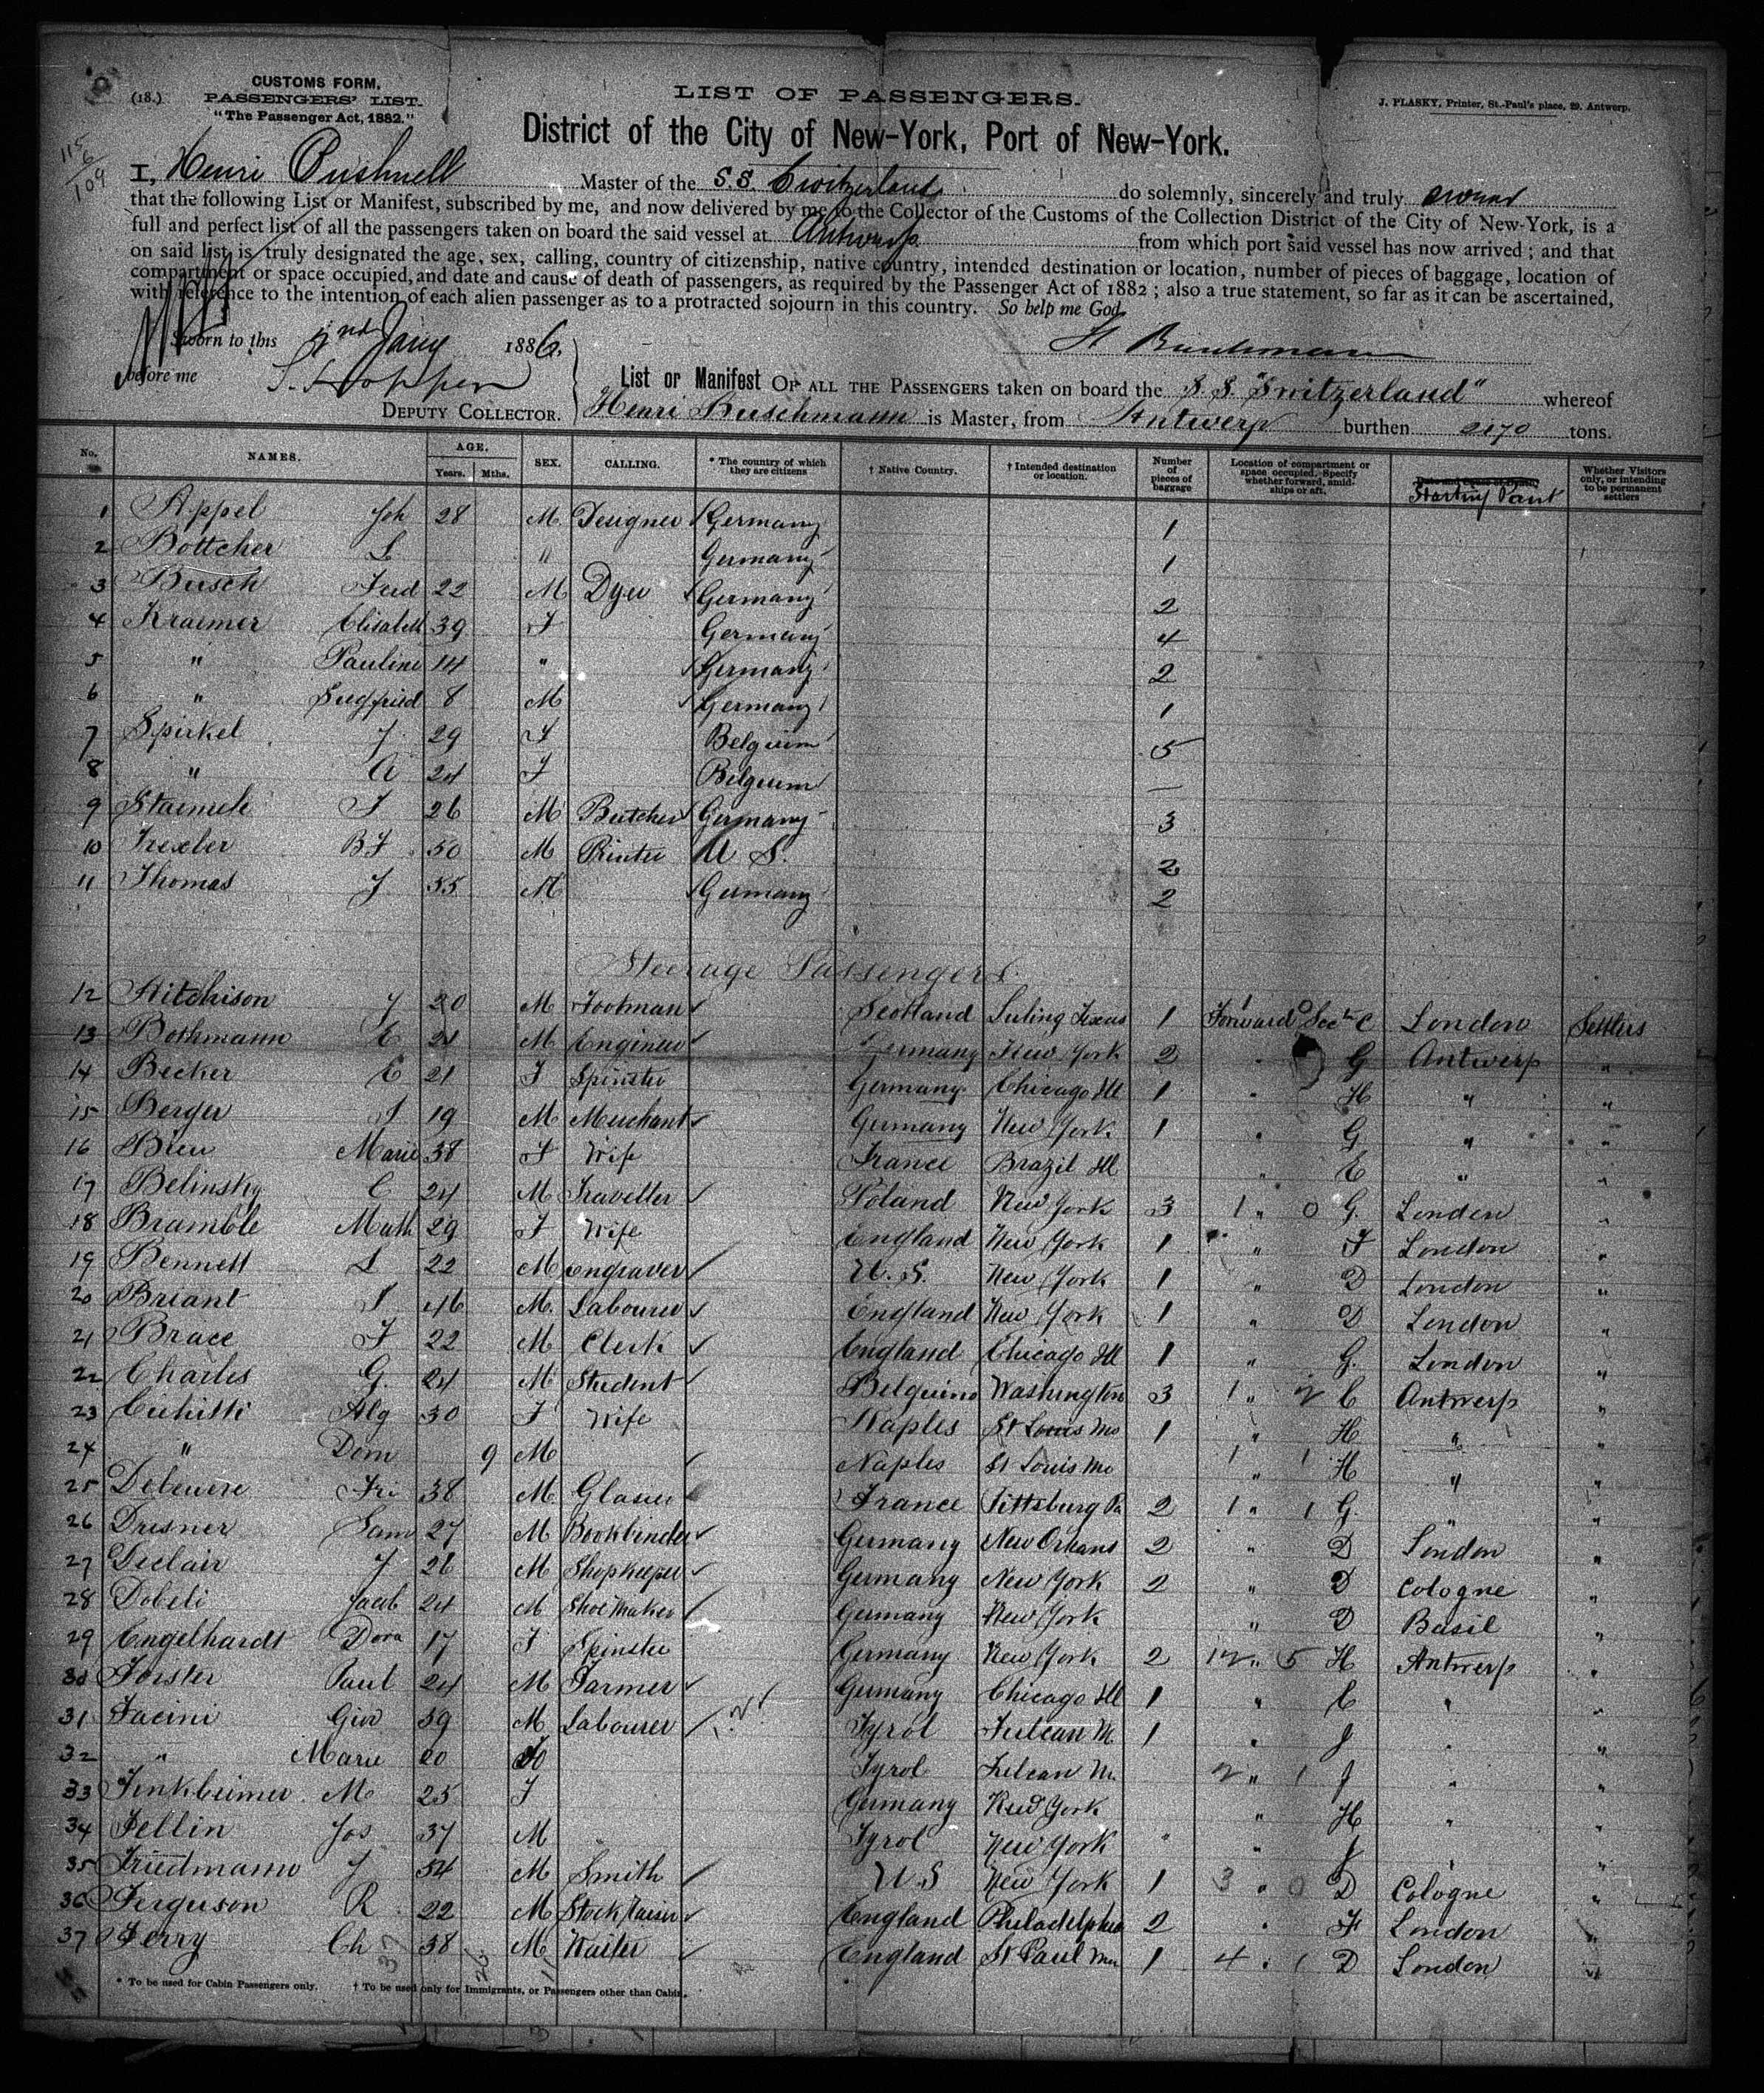 (18.)
CUSTOMS FORM.
PASSENGERS' LIST.
"The Passenger Act, 1882."
LIST OF PASSENGERS.
J. PLASKY, Printer, St.-Paul's place, 29. Antwerp.
District of the City of New-York, Port of New-York.
115/6
109
I, Henri Master of the S.S. Switzerland do solemnly, sincerely and truly swear
that the following List or Manifest, subscribed by me, and now delivered by me to the Collector of the Customs of the Collection District of the City of New-York, is a
full and perfect list of all the passengers taken on board the said vessel at Antwerp from which port said vessel has now arrived; and that
on said list is truly designated the age, sex, calling, country of citizenship, native country, intended destination or location, number of pieces of baggage, location of
compartment or space occupied, and date and cause of death of passengers, as required by the Passenger Act of 1882; also a true statement, so far as it can be ascertained,
with reference to the intention of each alien passenger as to a protracted sojourn in this country. So help me God
Sworn to this 2nd Jany 1886,
before me
DEPUTY COLLECTOR.
List or Manifest OF ALL THE PASSENGERS taken on board the S.S. "Switzerland" whereof
Henri Buschmann is Master, from Antwerp burthen 2170 tons.
No. NAMES. AGE. Years. Mths. SEX. CALLING. * The country of which they are citizens † Native Country. † Intended destination or location. Number of pieces of baggage Location of compartment or space occupied. Specify whether forward, amidships or aft. Date and Cause of Death Starting Point Whether Visitors only, or intending to be permanent settlers
1 Appel Joh 28 M. Designer Germany 1
2 Bottcher L " Germany 1
3 Busch Ferd 22 M Dyer Germany 2
4 Kraemer Elisabeth 39 F Germany 4
5 " Pauline 14 " Germany 2
6 " Siegfried 8 M Germany 1
7 Spirkel J 29 F Belgium 5
8 " A 24 F Belgium —
9 J 26 M Butcher Germany 3
10 Trexler B.F. 50 M Printer U S. 2
11 Thomas J 55 M Germany 2
Steerage Passengers.
12 Hitchison J 20 M Footman Scotland Luling Texas 1 1 Forward 0 Sec C London Settlers
13 Bothmann E 24 M Engineer Germany New York 2 " G Antwerp "
14 Becker E 21 F Spinster Germany Chicago Ill 1 " H " "
15 Berger J 19 M Merchant Germany New York 1 " G " "
16 Marie 38 F Wife France Brazil Ill " E " "
17 Belinsky C 24 M Traveller Poland New York 3 1 " 0 G. London "
18 Bramble Math 29 F Wife England New York 1 " F London "
19 Bennett L 22 M engraver U. S. New York 1 " D London "
20 Briant J 46 M. Labourer England New York 1 " D London "
21 Brace F 22 M Clerk England Chicago Ill 1 " G. London "
22 Charles G. 24 M Student Belgium Washington 3 1 " 2 C Antwerp "
23 Alg 30 F Wife Naples St Louis Mo 1 " H " "
24 " Dom 9 M Naples St Louis Mo 1 " 1 H " "
25 38 M. Glasier France Pittsburg Pa 2 1 " 1 G. " "
26 Dresner Sam 27 M Bookbinder Germany New Orleans 2 " D London "
27 Declair J 26 M Shopkeeper Germany New York 2 " D Cologne "
28 Dobeli Jacob 24 M Shoe Maker Germany New York " D Basil "
29 Engelhardt Dora 17 F Spinster Germany New York 2 12 " 5 H Antwerp "
30 Forster Paul 24 M Farmer Germany Chicago Ill 1 " C " "
31 Facini Giov 39 M Labourer Tyrol M. 1 " J " "
32 " Marie 20 F Tyrol M. 2 " 1 J " "
33 M 25 F Germany New York " H " "
34 Fellin Jos 37 M Tyrol New York " " J "
35 Friedmann J 54 M Smith U.S New York 1 3 " 0 D Cologne "
36 Ferguson R 22 M Stock raiser England Philadelphia 2 " F London "
37 Ferry Ch 38 M Waiter England St Paul 1 4 " 1 D London "
* To be used for Cabin Passengers only. † To be used only for Immigrants, or Passengers other than Cabin.